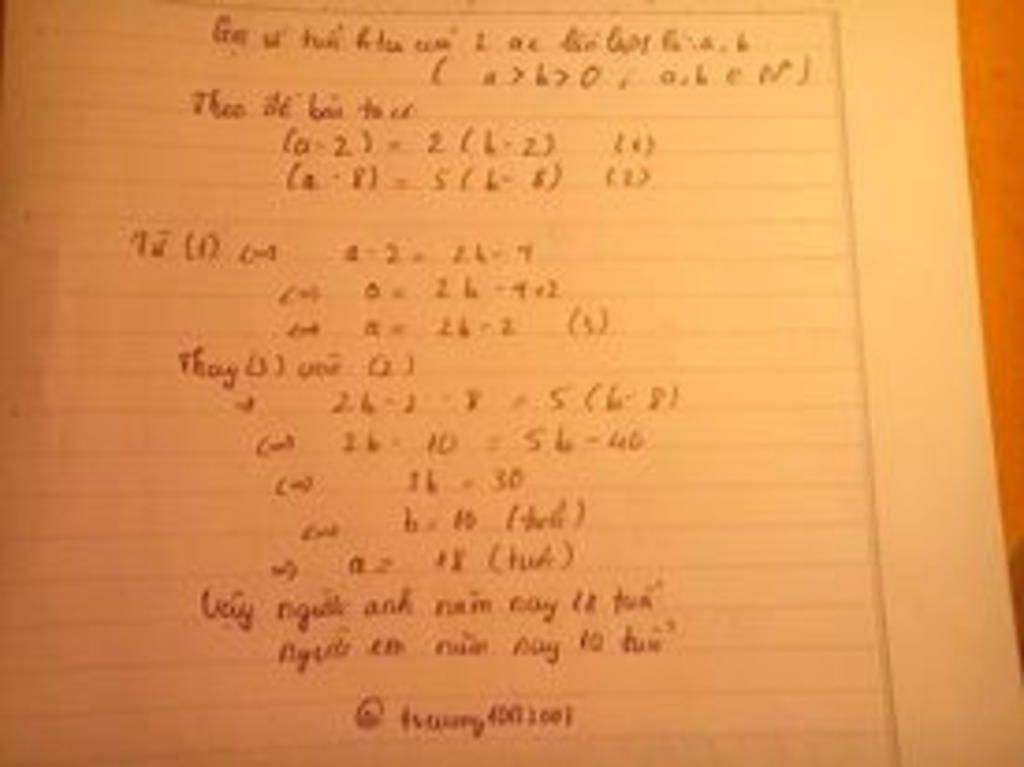 Gọi số tuổi h.tại của 2 ae lần lượt là a, b
( a > b > 0 ; a, b ∈ N* )
Theo đề bài ta có
(a - 2) = 2 (b - 2) (1)
(a - 8) = 5 (b - 8) (2)
Từ (1) <=> a - 2 = 2b - 4
<=> a = 2b - 4 + 2
<=> a = 2b - 2 (3)
Thay (3) vào (2)
=> 2b - 2 - 8 = 5 (b - 8)
<=> 2b - 10 = 5b - 40
<=> 3b = 30
<=> b = 10 (tuổi)
=> a = 18 (tuổi)
Vậy người anh năm nay 18 tuổi
người em năm nay 10 tuổi